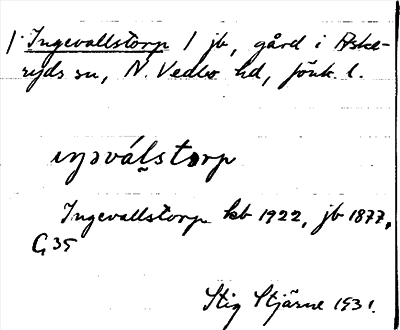 1. Ingevallstorp 1 jb, gård i Aske-
ryds sn, N. Vedbo hd, Jönk. l.
iŋəválstɔrp
Ingevallstorp kb 1922, jb 1877,
G 35
Stig Stjärne 1931.